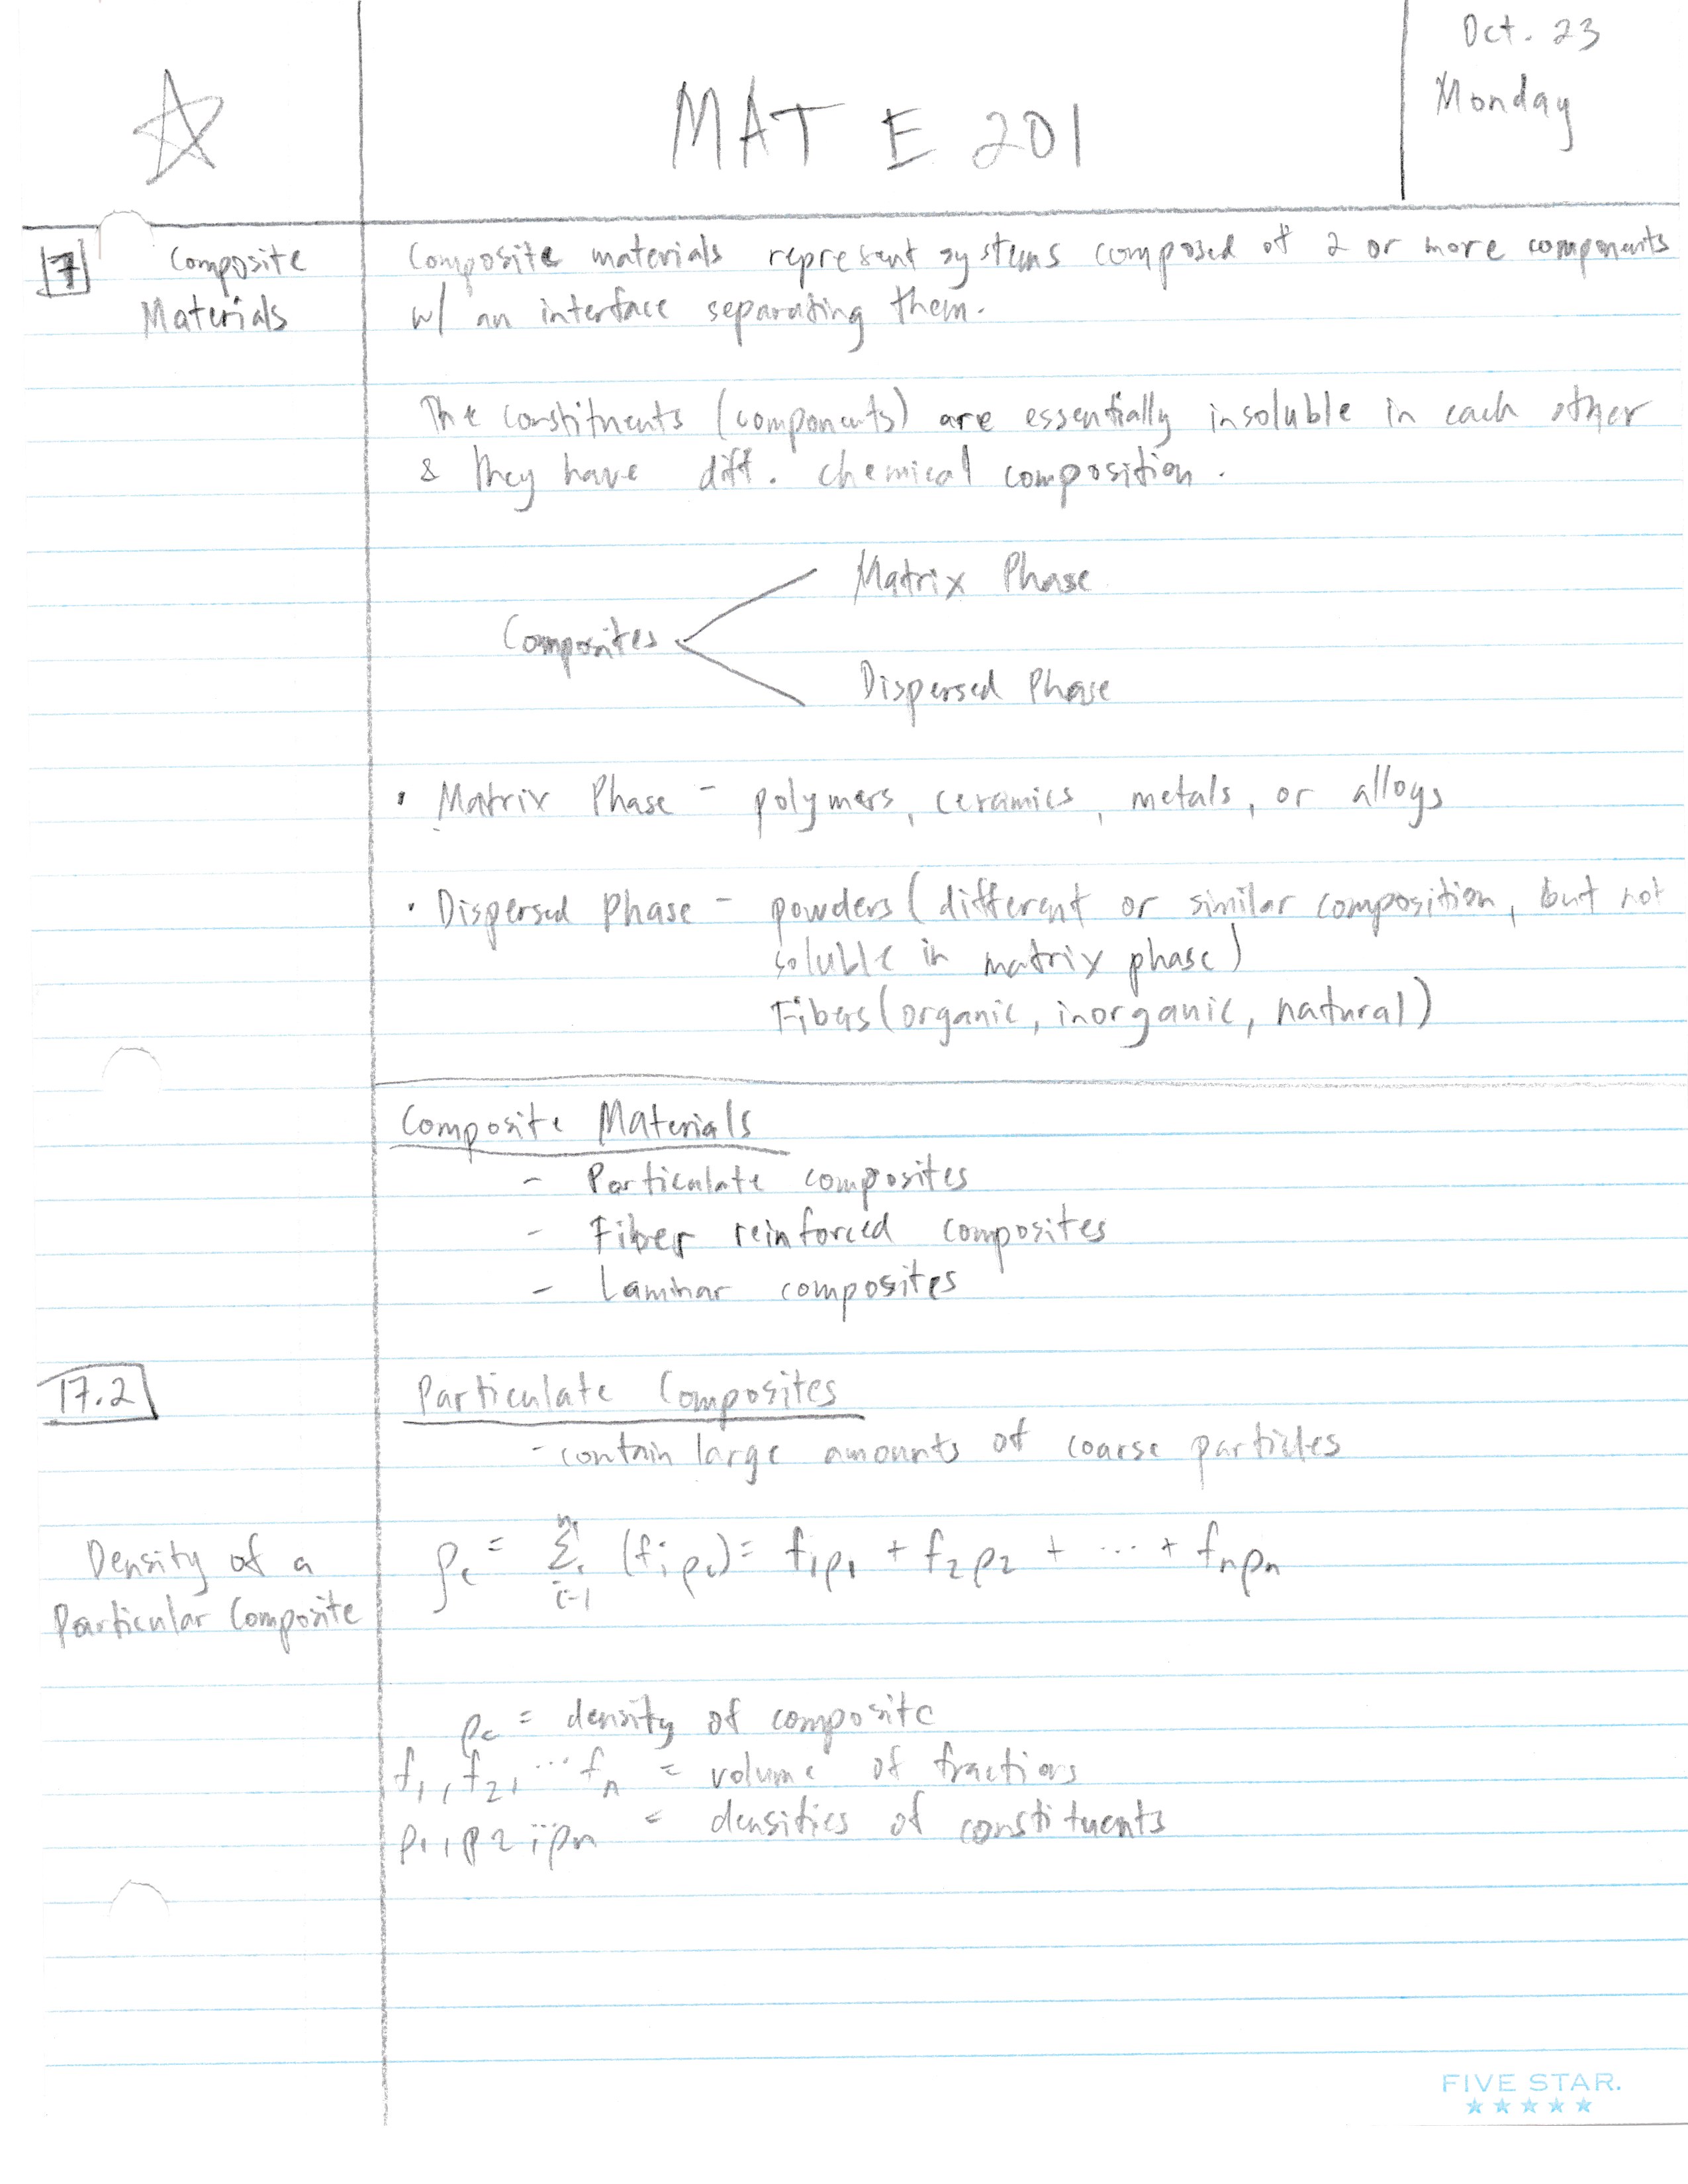 Oct. 23
Monday
MAT E 201
17 Composite
Materials
Composite materials represent systems composed of 2 or more components
w/ an interface separating them.
The constituents (components) are essentially insoluble in each other
& they have diff. chemical composition.
Matrix Phase
Composites
Dispersed Phase
• Matrix Phase - polymers, ceramics, metals, or alloys
• Dispersed Phase - powders (different or similar composition, but not
soluble in matrix phase)
Fibers (organic, inorganic, natural)
Composite Materials
- Particulate composites
- Fiber reinforced composites
- Laminar composites
17.2
Particulate Composites
- contain large amounts of coarse particles
Density of a
Particular Composite
ρc = Σ i=1 n (fiρi) = f1ρ1 + f2ρ2 + ... + fnρn
ρc = density of composite
f1, f2, ... fn = volume of fractions
ρ1, ρ2 ... ρn = densities of constituents
FIVE STAR.
★★★★★